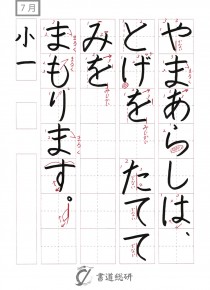 7月
小一
やまあらしは、
とげを たてて
みを
まもります。
書道総研